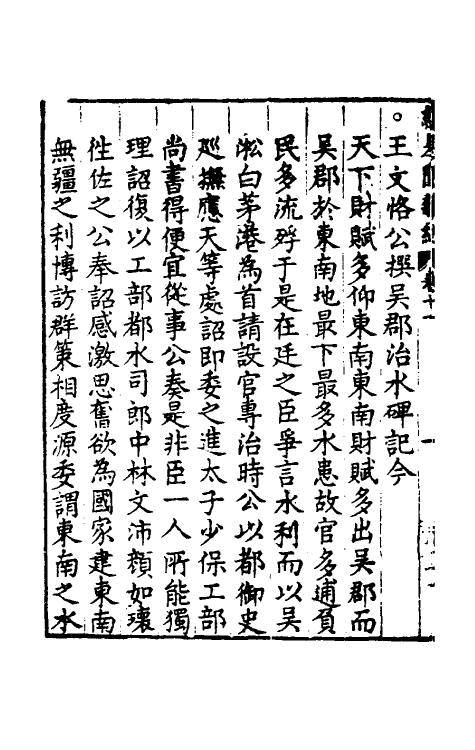 王文恪公撰吳郡治水碑記今
天下財賦多仰東南東南財賦多出吳郡而
吳郡於東南地最下最多水患故官多逋負
民多流殍于是在廷之臣爭言水利而以吳
淞白茅港為首請設官專治時公以都御史
廵撫應天等處詔即委之進太子少保工部
尚書得便宜從事公奏是非臣一人所能獨
理詔復以工部都水司郎中林文沛顔如瓌
徃佐之公奉詔感激思奮欲為國家建東南
無疆之利博訪群策相度源委謂東南之水